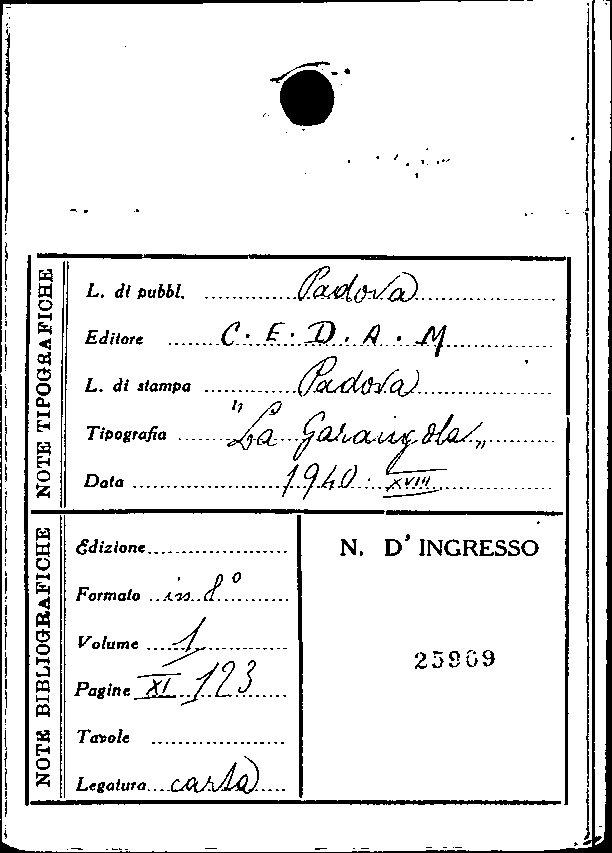 NOTE TIPOGRAFICHE
L. di pubbl. Padova
Editore C. E. D. A. M
L. di stampa Padova
Tipografia "La Garangola"
Data 1940. XVIII
NOTE BIBLIOGRAFICHE
Edizione
Formato in 8°
Volume 1
Pagine XI 123
Tavole
Legatura carta
N. D' INGRESSO
25909